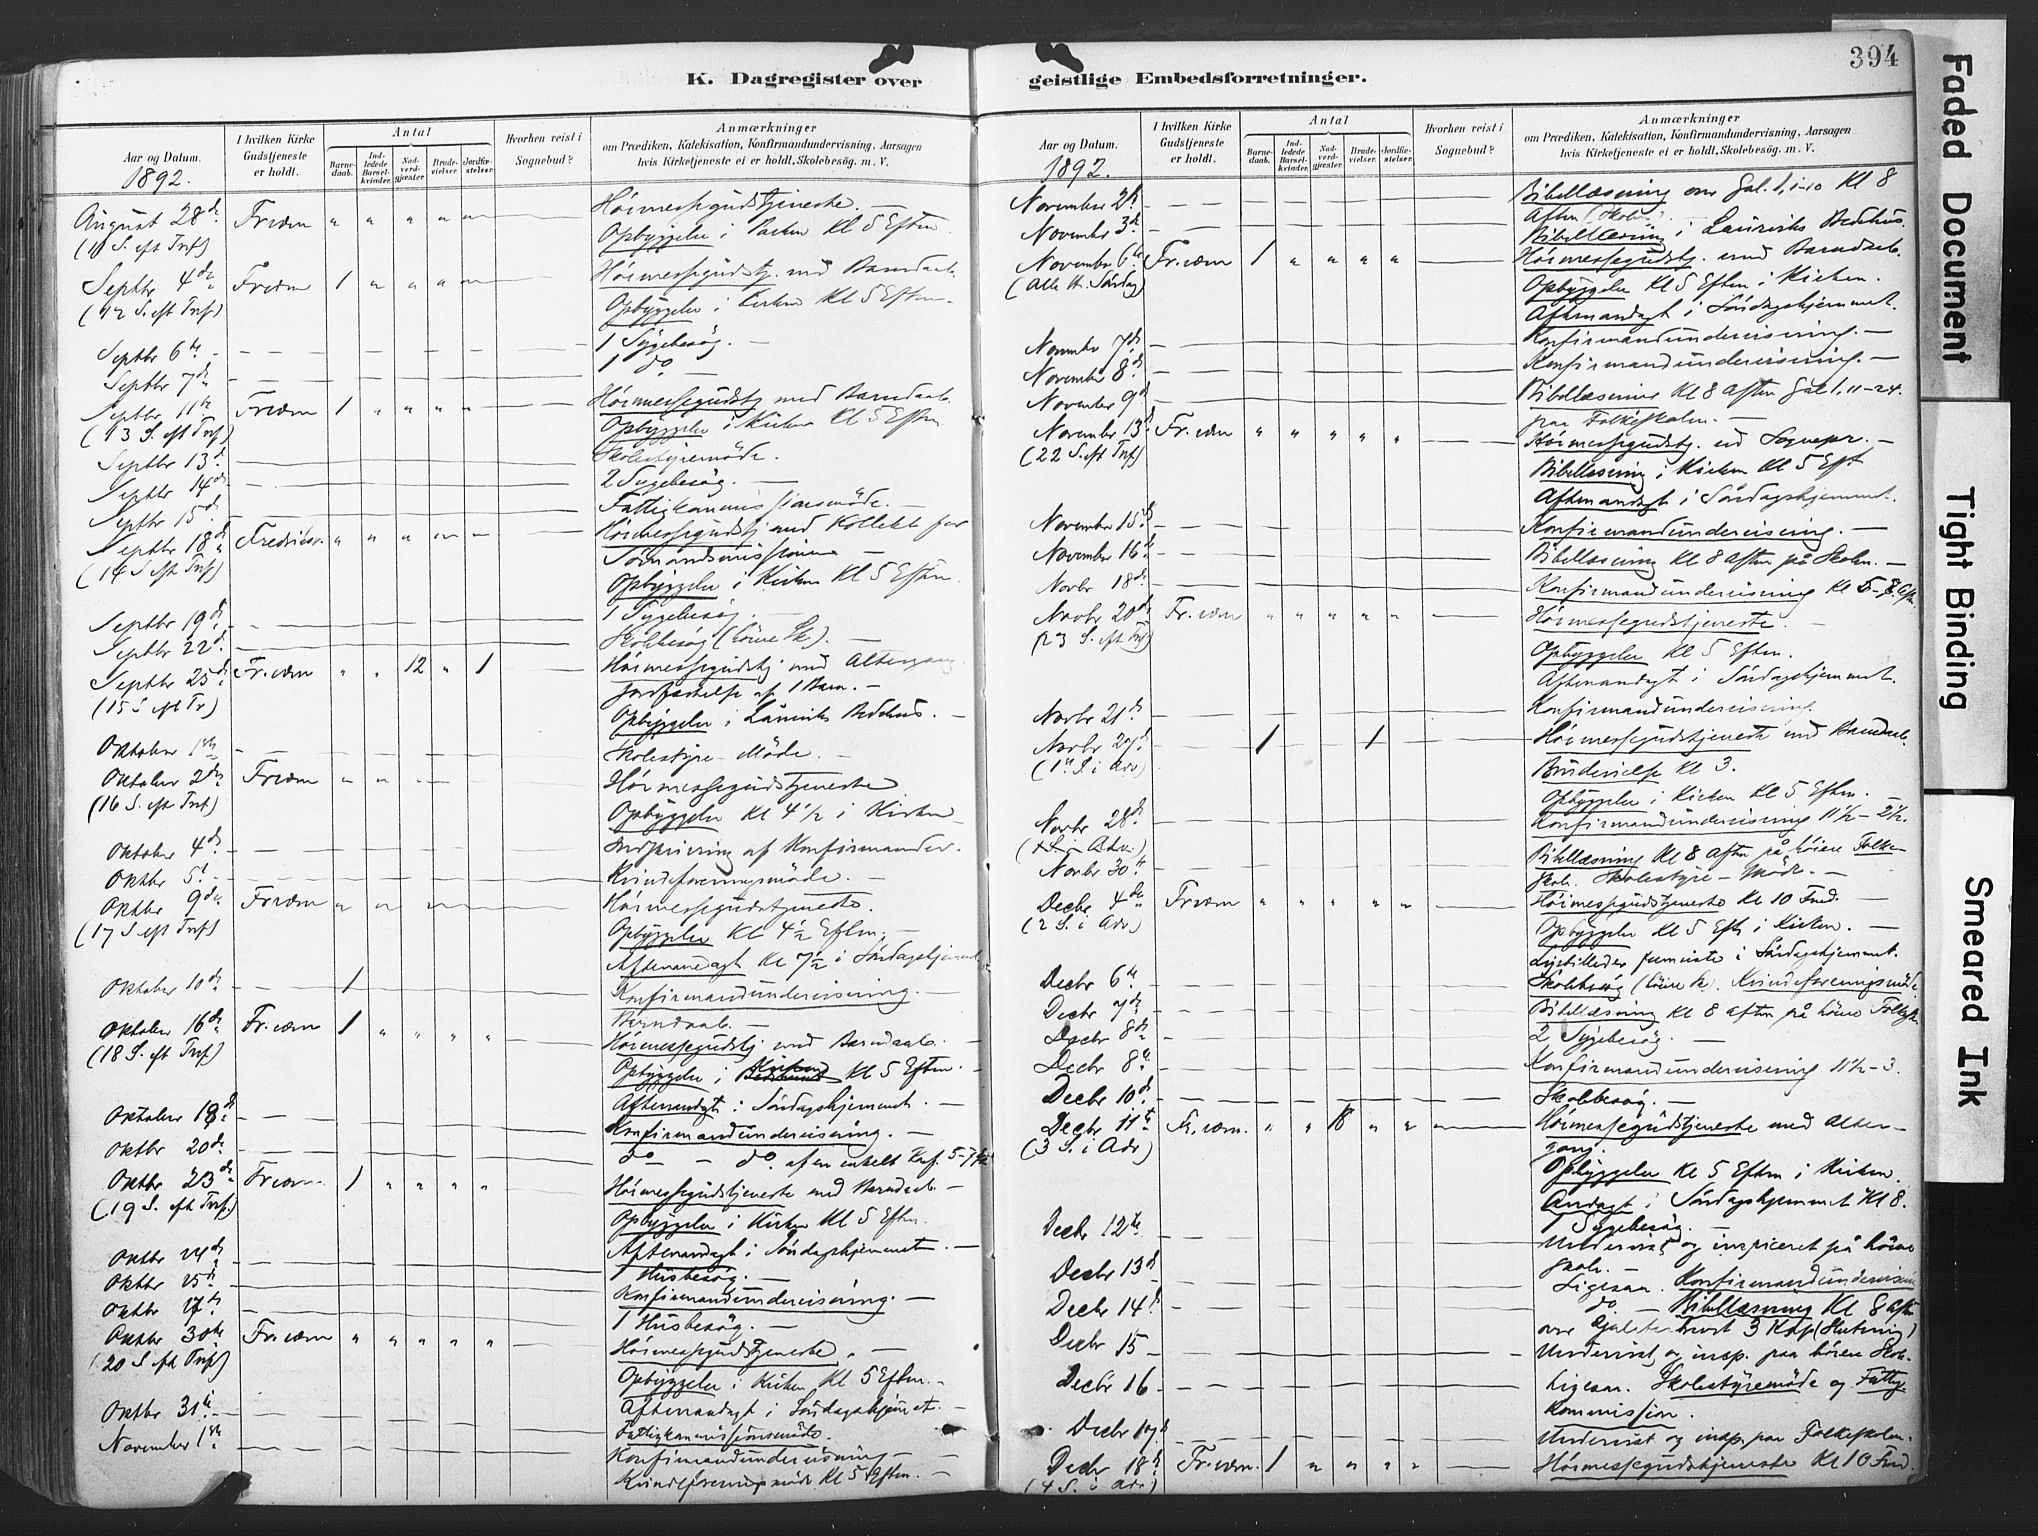 394
K. Dagregister over geistlige Embedsforretninger.
Aar og Datum.
1892.
I hvilken Kirke Gudstjeneste er holdt.
Antal
Barnedaab.
Indledede Barselkvinder.
Nadverdgjæster
Brudevielser.
Jordfæstelser.
Hvorhen reist i Sognebud?
Anmærkninger
om Prædiken, Katekisation, Konfirmandundervisning, Aarsagen
hvis Kirketjeneste ei er holdt, Skolebesøg. m. V.
August 28de Fr.værn " " " " " Høimessegudstjeneste. —
(11 S. eft Trif) Opbyggelse i Kirken Kl 5 Eftm
Septbr 4de Fr.værn 1 " " " " Høimessegudstj. med Barndaab.
(12 S. eft Trif) Opbyggelse i Kirken Kl 5 Eftm.
Septbr 6te 1 Sygebesøg. —
Septbr 7de 1 do —
Septbr 11te Fr.værn 1 " " " " Høimessegudstj med Barndaab.
(13 S. eft Trif) Opbyggelse i Kirken Kl 5 Eftm.
Septbr 13de Skolestyremøde.
Septbr 14de 2 Sygebesøg. —
Septbr 15de Fattigkommissionsmøde.
Septbr 18de Fredriksv. " " " " " Høimessegudstj med Kollekt for
(14 S eft Trif) Sømandsmissionen —
Opbyggelse i Kirken Kl 5 Eftm.
Septbr 19de 1 Sygebesøg —
Septbr 22de Skolebesøg (høiere Sk). —
Septbr 25de Fr.værn " " 12 " 1 Høimessegudstj med Altergang.
(15 S eft Tr) Jordfæstelse af 1 Barn. —
Opbyggelse i Laurviks Bedehus. —
Oktober 1ste Skolestyre-Møde. —
Oktober 2den Fr.værn " " Høimessegudstjeneste
(16 S. eft Trif) Opbyggelse Kl 4 1/2 i Kirken
Oktober 4de Indskrivning af Konfirmander.
Oktbr 5te Kvindeforeningsmøde. —
Oktbr 9de Fr.værn " " " Høimessegudstjeneste.
(17 S eft Trif) Opbyggelse Kl 4 1/2 Eftm. —
Aftenandagt Kl 7 1/2 i Søndagshjemmet
Oktober 10de 1 Konfirmandundervisning. —
Barndaab. —
Oktober 16de Fr.værn 1 " " " " Høimessegudstj med Barndaab. —
(18 S. eft Trif) Opbyggelse i Kirken Kl 5 Eftm. —
Aftenandagt i Søndagshjemmet. —
Oktober 18de Konfirmandundervisning. —
Oktbr 20de do — do. af en enkelt Konf. 5-7
Oktbr 23de Fr.værn 1 " " " " Høimessegudstjeneste med Barndaab —
(19 S. eft Trif.) Opbyggelse i Kirken Kl 5 Eftm.
Aftenandagt i Søndagshjemmet —
Oktbr 24de 1 Husbesøg. —
Oktbr 25de Konfirmandundervisning. —
Oktbr 27de 1 Husbesøg. —
Oktbr 30te Fr.værn " " " " " Høimessegudstjeneste. —
(20 S eft Trif) Opbyggelse i Kirken Kl 5 Eftm. —
Aftenandagt i Søndagshjemmet. —
Oktbr 31te Fattigkommissionsmøde.
November 1ste Konfirmandundervisning —
Kvindeforeningsmøde Kl 5 Eftm. —
Aar og Datum.
1892.
I hvilken Kirke Gudstjeneste er holdt.
Antal
Barnedaab.
Indledede Barselkvinder.
Nadverdgjæster
Brudevielser.
Jordfæstelser.
Hvorhen reist i Sognebud?
Anmærkninger
om Prædiken, Katekisation, Konfirmandundervisning, Aarsagen
hvis Kirketjeneste ei er holdt, Skolebesøg. m. V.
November 2de Bibellæsning over Gal. 1, 1-10 Kl 8
Aften (Skolen). —
November 3de Bibellæsning i Laurviks Bedehus.
November 6te Fr.værn 1 " " " " Høimessegudstj. med Barndaab.
(Alle H. Søndag) Opbyggelse Kl 5 Eftm i Kirken.
Aftenandagt i Søndagshjemmet.
Novembr 7de Konfirmandundervisning. —
November 8de Konfirmandundervisning. —
November 9de Bibellæsning Kl 8 Aften Gal 1, 11-24.
paa Folkeskolen. —
November 13de Fr.værn " " " " " Høimessegudstj. ved Sognepr. —
(22 S. eft Trif) Bibellæsning i Kirken Kl 5 Eft
Aftenandagt i Søndagshjemmet.
November 15de Konfirmandundervisning. —
November 16de Bibellæsning Kl 8 Aften på Skolen. —
Novbr 18de Konfirmandundervisning Kl 5-8 Aft.
Novbr 20de Fr.værn " " " " " Høimessegudstjeneste. —
(23 S. eft Trf) Opbyggelse Kl 5 Eftm.
Aftenandagt i Søndagshjemmet.
Novbr 21de Konfirmandundervisning.
Novbr 27de 1 1 Høimessegudstjeneste med Barndaab.
(1ste S. i Adv) Brudevielse Kl 3.
Opbyggelse i Kirken Kl 5 Eftm. —
Novbr 28de Konfirmandundervisning 11 1/2 - 2 1/2.
Novbr 30te Bibellæsning Kl 8 Aften på høiere Folke-
skole. Skolestyre-Møde. —
Decbr 4de Fr.værn " " " " " Høimessegudstjeneste Kl 10 Fmd. —
(2 S. i Adv) Opbyggelse Kl 5 Eft i Kirken. —
Lysbilleder i Søndagshjemmet.
Decbr 6te Skolebesøg (høiere Sk). Kvindeforeningsmøde
Decbr 7de Bibellæsning Kl 8 Aften på høiere Folkesk.
Decbr 8de 2 Sygebesøg. —
Decbr 8de Konfirmandundervisning 11 1/2 - 3.
Decbr 10de Skolebesøg. —
Decbr 11te Fr.værn. " " 18 " " Høimessegudstjeneste med Alter-
(3 S. i Adv) gang.
Opbyggelse Kl 5 Eftm i Kirken.
Andagt i Søndagshjemmet Kl 8.
Decbr 12te 1 Sygebesøg. —
Undervist og inspiceret på høiere
Decbr 13de skole. — Ligesaa. Konfirmandundervisning
Decbr 14de do. — Bibellæsning Kl 8 Aften
over Galaterbrevet 3 Kap (Slutning)
Decbr 15 Undervist og insp. paa høiere Skole.
Decbr 16 Ligesaa. Skolestyremøde og Fattig-
kommission.
Decbr 17de Undervist og insp. paa Folkeskolen.
Decbr 18de Fr.værn. 1 " " " " Høimessegudstjeneste Kl 10 Fmd.
(4 S. i Adv)
Faded Document
Tight Binding
Smeared Ink